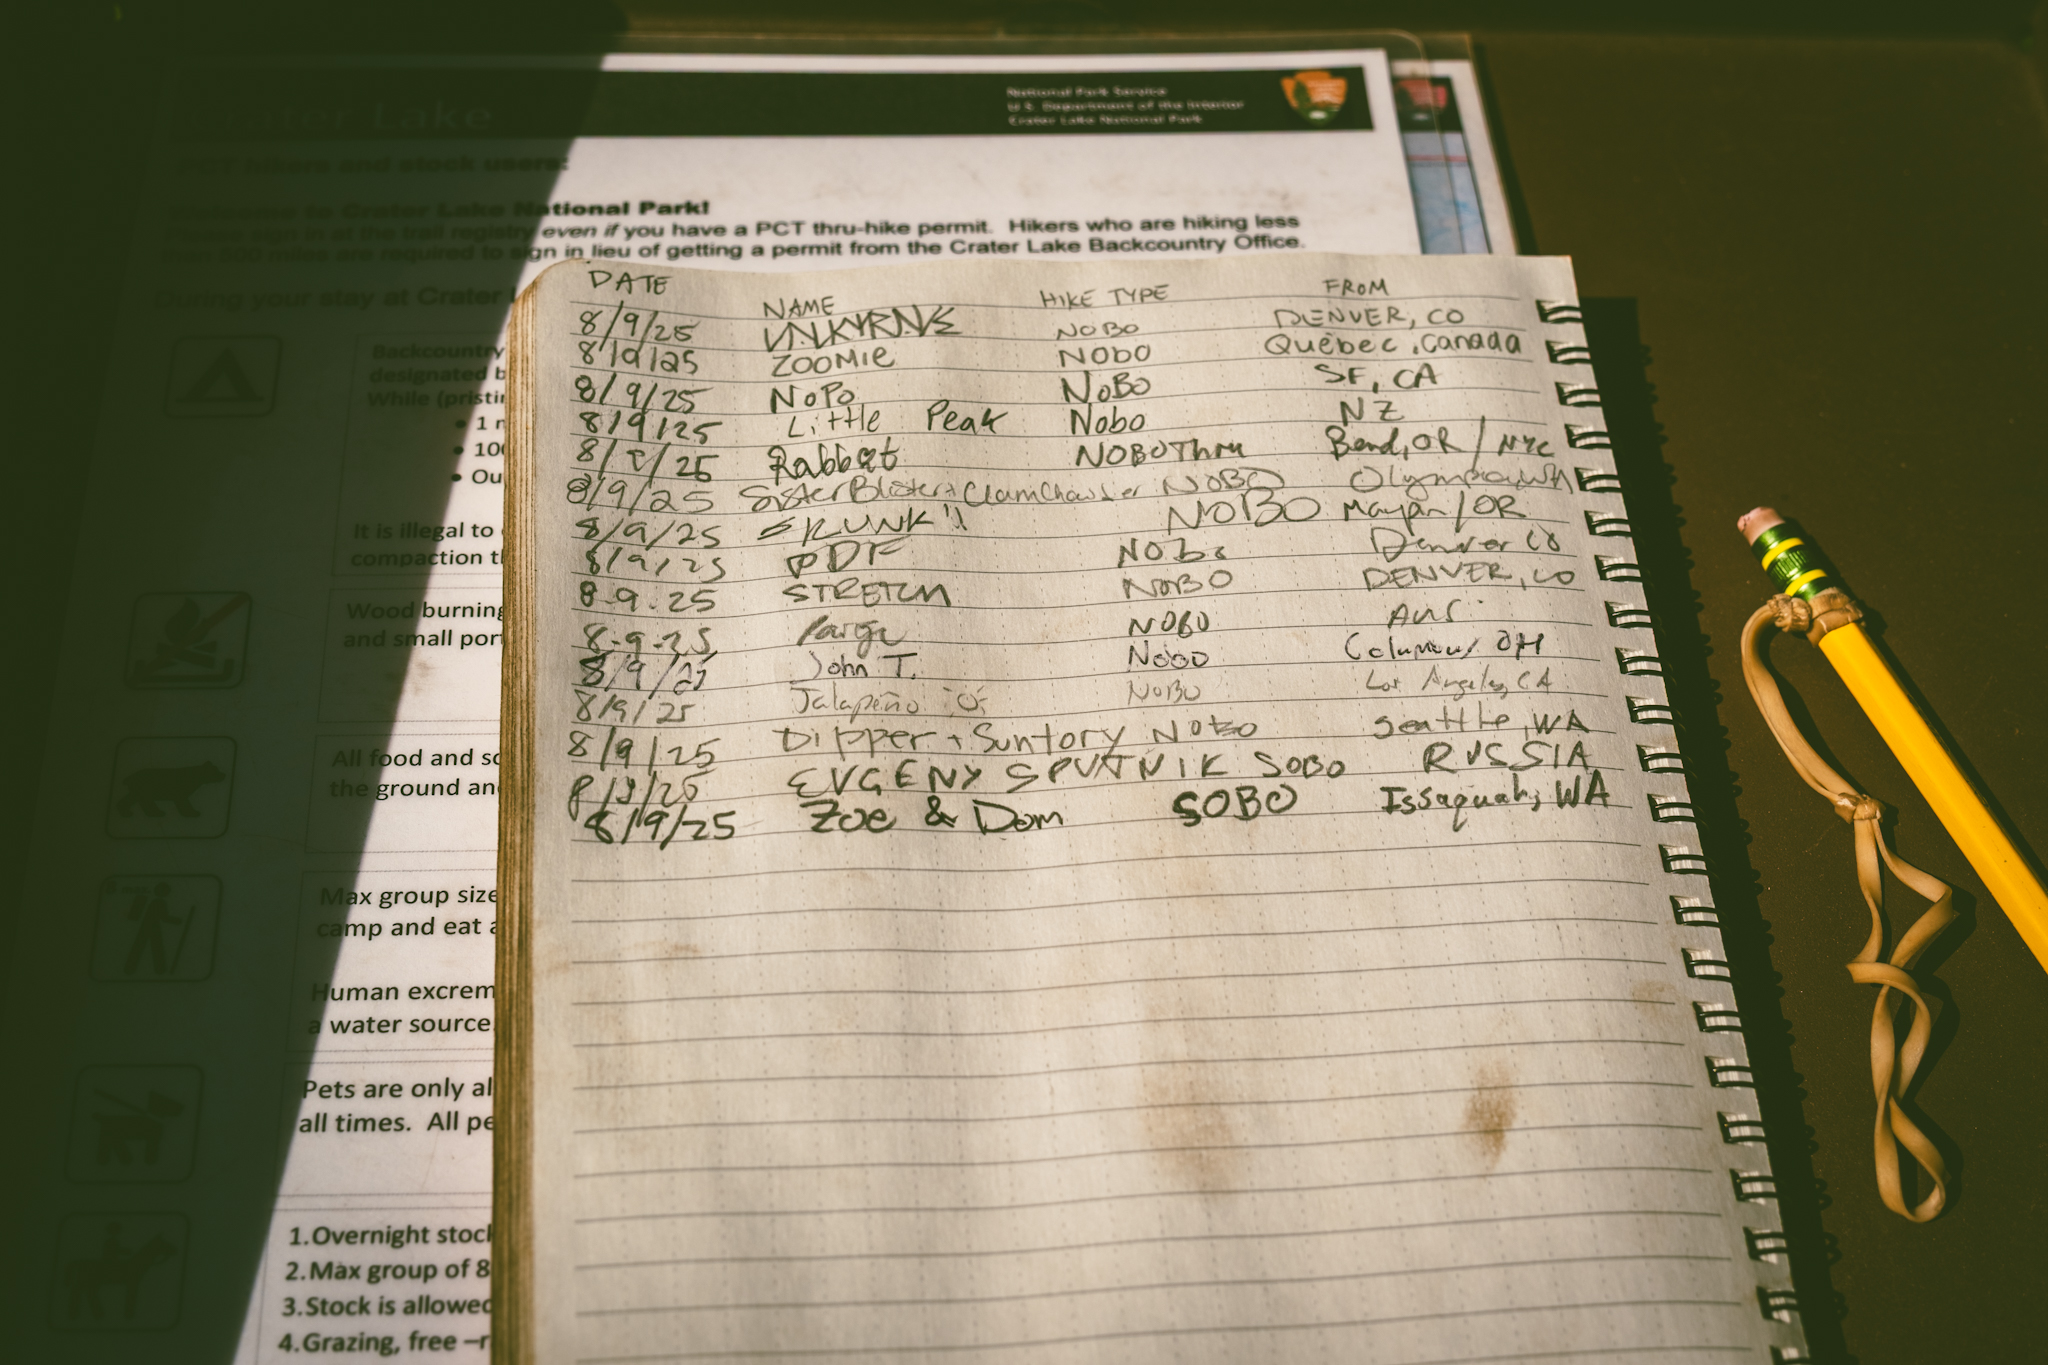 Crater Lake
National Park Service
U.S. Department of the Interior
Crater Lake National Park
PCT hikers and stock users:
Welcome to Crater Lake National Park!
Please sign in at the trail registry even if you have a PCT thru-hike permit. Hikers who are hiking less
than 500 miles are required to sign in lieu of getting a permit from the Crater Lake Backcountry Office.
During your stay at Crater L
DATE NAME HIKE TYPE FROM
8/9/25 NOBO DENVER, CO
8/9/25 ZOOMIE NOBO Québec, Canada
8/9/25 NoPo NoBo SF, CA
8/9/25 Little Peak Nobo NZ
25 Rabbat NOBO Thru Bend, OR / NYC
8/9/25 SisterBlister + ClamChowder NOBO Olympia, WA
8/9/25 SKUNK!! NOBO / OR
8/9/25 PDF NOBo Denver CO
8-9-25 STRETCH NOBO DENVER, CO
8-9-25 NOBO AUS
8/9/25 John T. Nobo Columbus OH
8/9/25 Jalapeño NOBO Los Angeles, CA
8/9/25 Dipper + Suntory NoBo Seattle, WA
8/9/25 EVGENY SPUTNIK SOBO RUSSIA
8/9/25 Zoe & Dom SOBO Issaquah, WA
Backcountry
designated b
While (pristi
• 1 
• 10
• Ou
It is illegal to
compaction t
Wood burning
and small por
All food and
the ground an
Max group size
camp and eat
Human excrem
a water source.
Pets are only al
all times. All pe
1. Overnight stock
2. Max group of 8
3. Stock is allowed
4. Grazing, free –r